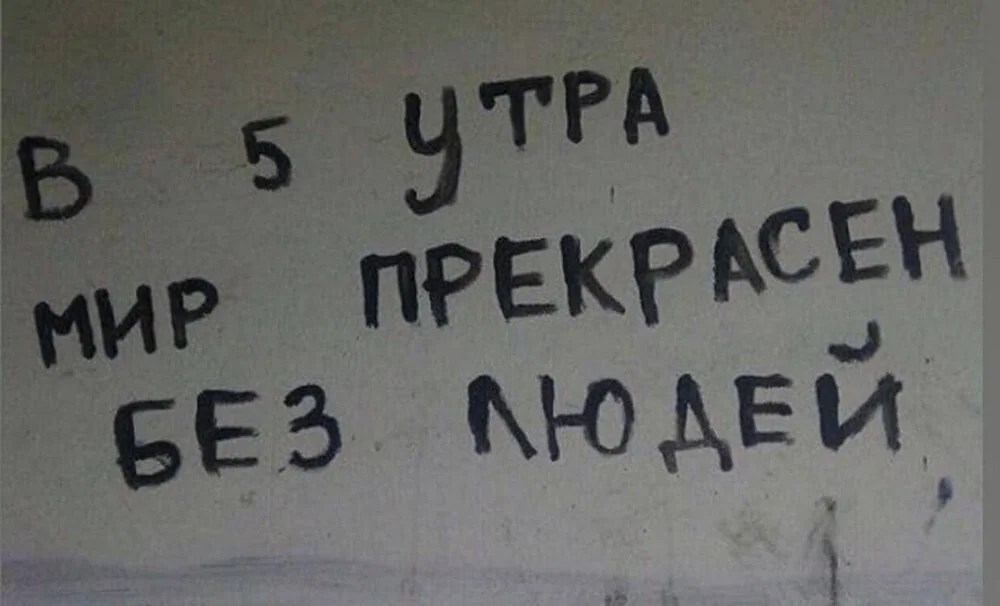 В 5 УТРА
МИР ПРЕКРАСЕН
БЕЗ ЛЮДЕЙ